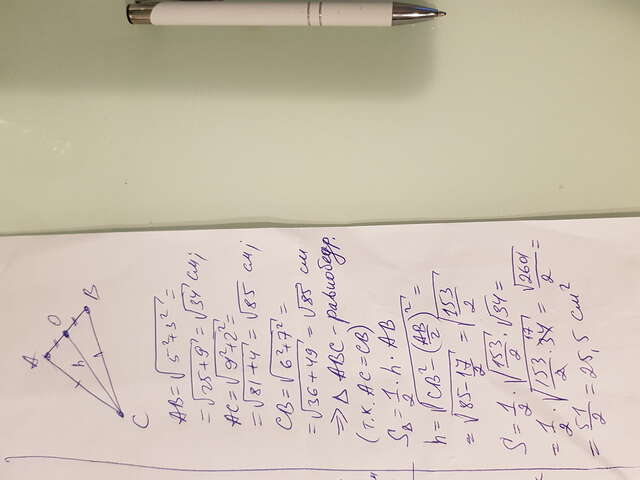 A
O
h
B
C
AB = √(5²+3²) =
= √(25+9) = √34 см;
AC = √(9²+2²) =
= √(81+4) = √85 см;
CB = √(6²+7²) =
= √(36+49) = √85 см
⇒ Δ ABC – равнобедр.
(т.к. AC = CB)
SΔ = 1/2 · h · AB
h = √(CB² − (AB/2)²) =
= √(85 − 17/2) = √(153/2)
S = 1/2 · √(153/2) · √34 =
= 1/2 · √(153/2 · 34 17) = √2601/2 =
= 51/2 = 25,5 см²